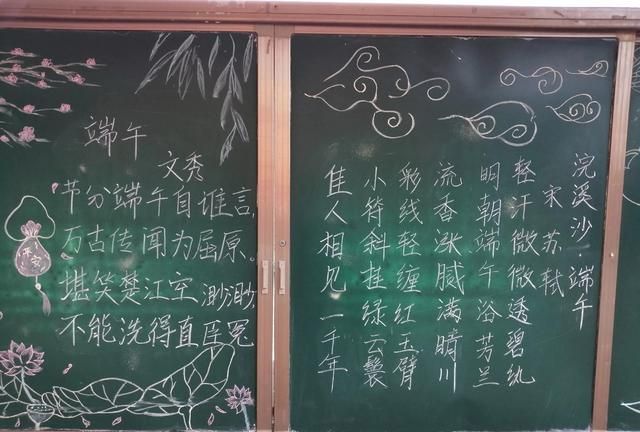 端午
文秀
节分端午自堆言,
万古传闻为屈原。
堪笑楚江空渺渺
不能洗得直臣冤
浣溪沙·端午
宋 苏轼
轻汗微微透碧纨
明朝端午浴芳兰
流香涨腻满晴川
彩线轻缠红玉臂
小符斜挂绿云鬟
佳人相见一千年